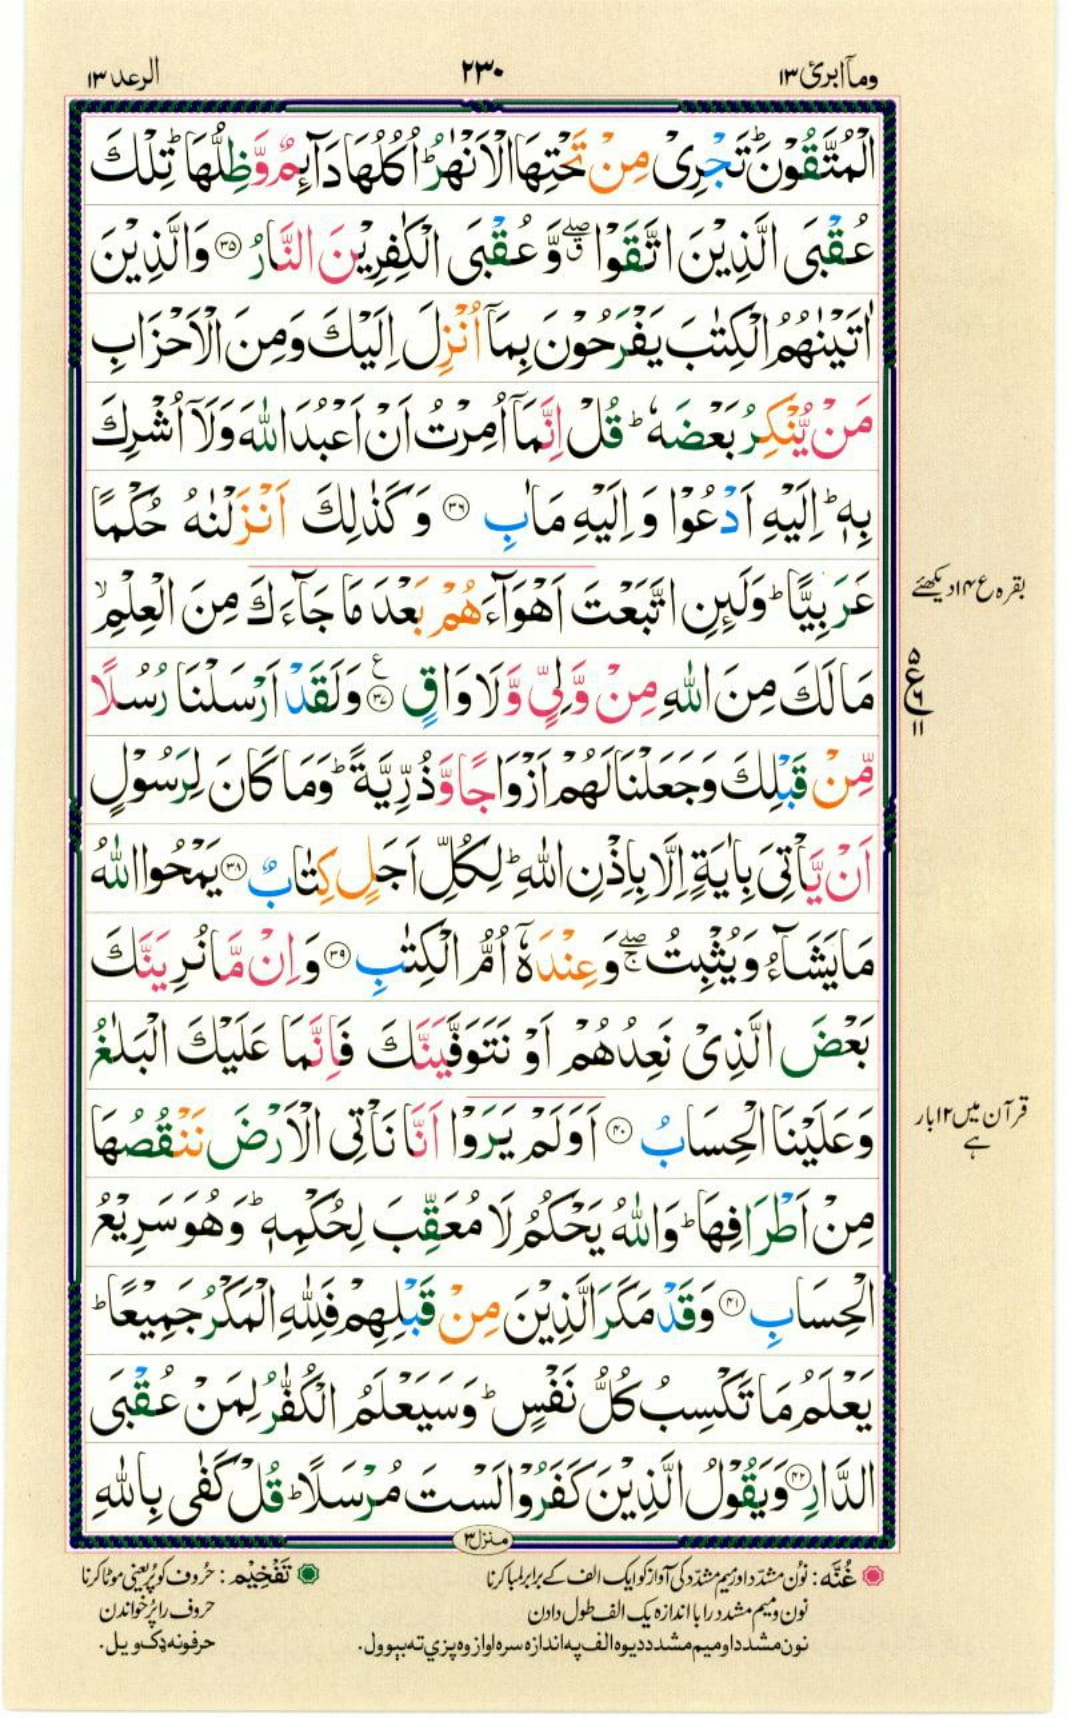 ومآ ابرئ ١٣
٢٣٠
الرعد ١٣
الْمُتَّقُوْنَ ؕ تَجْرِیْ مِنْ تَحْتِهَا الْاَنْهٰرُ ؕ اُكُلُهَا دَآىِٕمٌ وَّ ظِلُّهَا ؕ تِلْكَ
عُقْبَی الَّذِیْنَ اتَّقَوْا ۖۗ وَّ عُقْبَی الْكٰفِرِیْنَ النَّارُ ۝۳۵ وَالَّذِیْنَ
اٰتَیْنٰهُمُ الْكِتٰبَ یَفْرَحُوْنَ بِمَاۤ اُنْزِلَ اِلَیْكَ وَمِنَ الْاَحْزَابِ
مَنْ یُّنْكِرُ بَعْضَهٗ ؕ قُلْ اِنَّمَاۤ اُمِرْتُ اَنْ اَعْبُدَ اللّٰهَ وَلَاۤ اُشْرِكَ
بِهٖ ؕ اِلَیْهِ اَدْعُوْا وَ اِلَیْهِ مَاٰبِ ۝۳۶ وَ كَذٰلِكَ اَنْزَلْنٰهُ حُكْمًا
عَرَبِیًّا ؕ وَلَىِٕنِ اتَّبَعْتَ اَهْوَآءَهُمْ بَعْدَ مَا جَآءَكَ مِنَ الْعِلْمِ ۙ
بقرہ ع ۱۴ دیکھئے
مَا لَكَ مِنَ اللّٰهِ مِنْ وَّلِیٍّ وَّ لَا وَاقٍ ۝۳۷ ع وَلَقَدْ اَرْسَلْنَا رُسُلًا
۵
ع ۶
۱۱
مِّنْ قَبْلِكَ وَجَعَلْنَا لَهُمْ اَزْوَاجًا وَّ ذُرِّیَّةً ؕ وَمَا كَانَ لِرَسُوْلٍ
اَنْ یَّاْتِیَ بِاٰیَةٍ اِلَّا بِاِذْنِ اللّٰهِ ؕ لِكُلِّ اَجَلٍ كِتَابٌ ۝۳۸ یَمْحُوا اللّٰهُ
مَا یَشَآءُ وَ یُثْبِتُ ۖۚ وَ عِنْدَهٗۤ اُمُّ الْكِتٰبِ ۝۳۹ وَ اِنْ مَّا نُرِیَنَّكَ
بَعْضَ الَّذِیْ نَعِدُهُمْ اَوْ نَتَوَفَّیَنَّكَ فَاِنَّمَا عَلَیْكَ الْبَلٰغُ
وَ عَلَیْنَا الْحِسَابُ ۝۴۰ اَوَلَمْ یَرَوْا اَنَّا نَاْتِی الْاَرْضَ نَنْقُصُهَا
قرآن میں ۱۲ بار
ہے
مِنْ اَطْرَافِهَا ؕ وَاللّٰهُ یَحْكُمُ لَا مُعَقِّبَ لِحُكْمِهٖ ؕ وَهُوَ سَرِیْعُ
الْحِسَابِ ۝۴۱ وَ قَدْ مَكَرَ الَّذِیْنَ مِنْ قَبْلِهِمْ فَلِلّٰهِ الْمَكْرُ جَمِیْعًا ؕ
یَعْلَمُ مَا تَكْسِبُ كُلُّ نَفْسٍ ؕ وَسَیَعْلَمُ الْكُفّٰرُ لِمَنْ عُقْبَی
الدَّارِ ۝۴۲ وَیَقُوْلُ الَّذِیْنَ كَفَرُوْا لَسْتَ مُرْسَلًا ؕ قُلْ كَفٰی بِاللّٰهِ
منزل ۳
غُنَّه : نون مشدّد اور میم مشدّد کی آواز کو ایک الف کے برابر لمبا کرنا
نون و میم مشدد را با اندازه یک الف طول دادن
نون مشدد او میم مشدد د یوه الف په اندازه سره اواز وه پزي ته بېوول.
تَفْخِیْم : حُروف کو پُر یعنی موٹا کرنا
حروف را پُر خواندن
حرفونه ډک ویل.